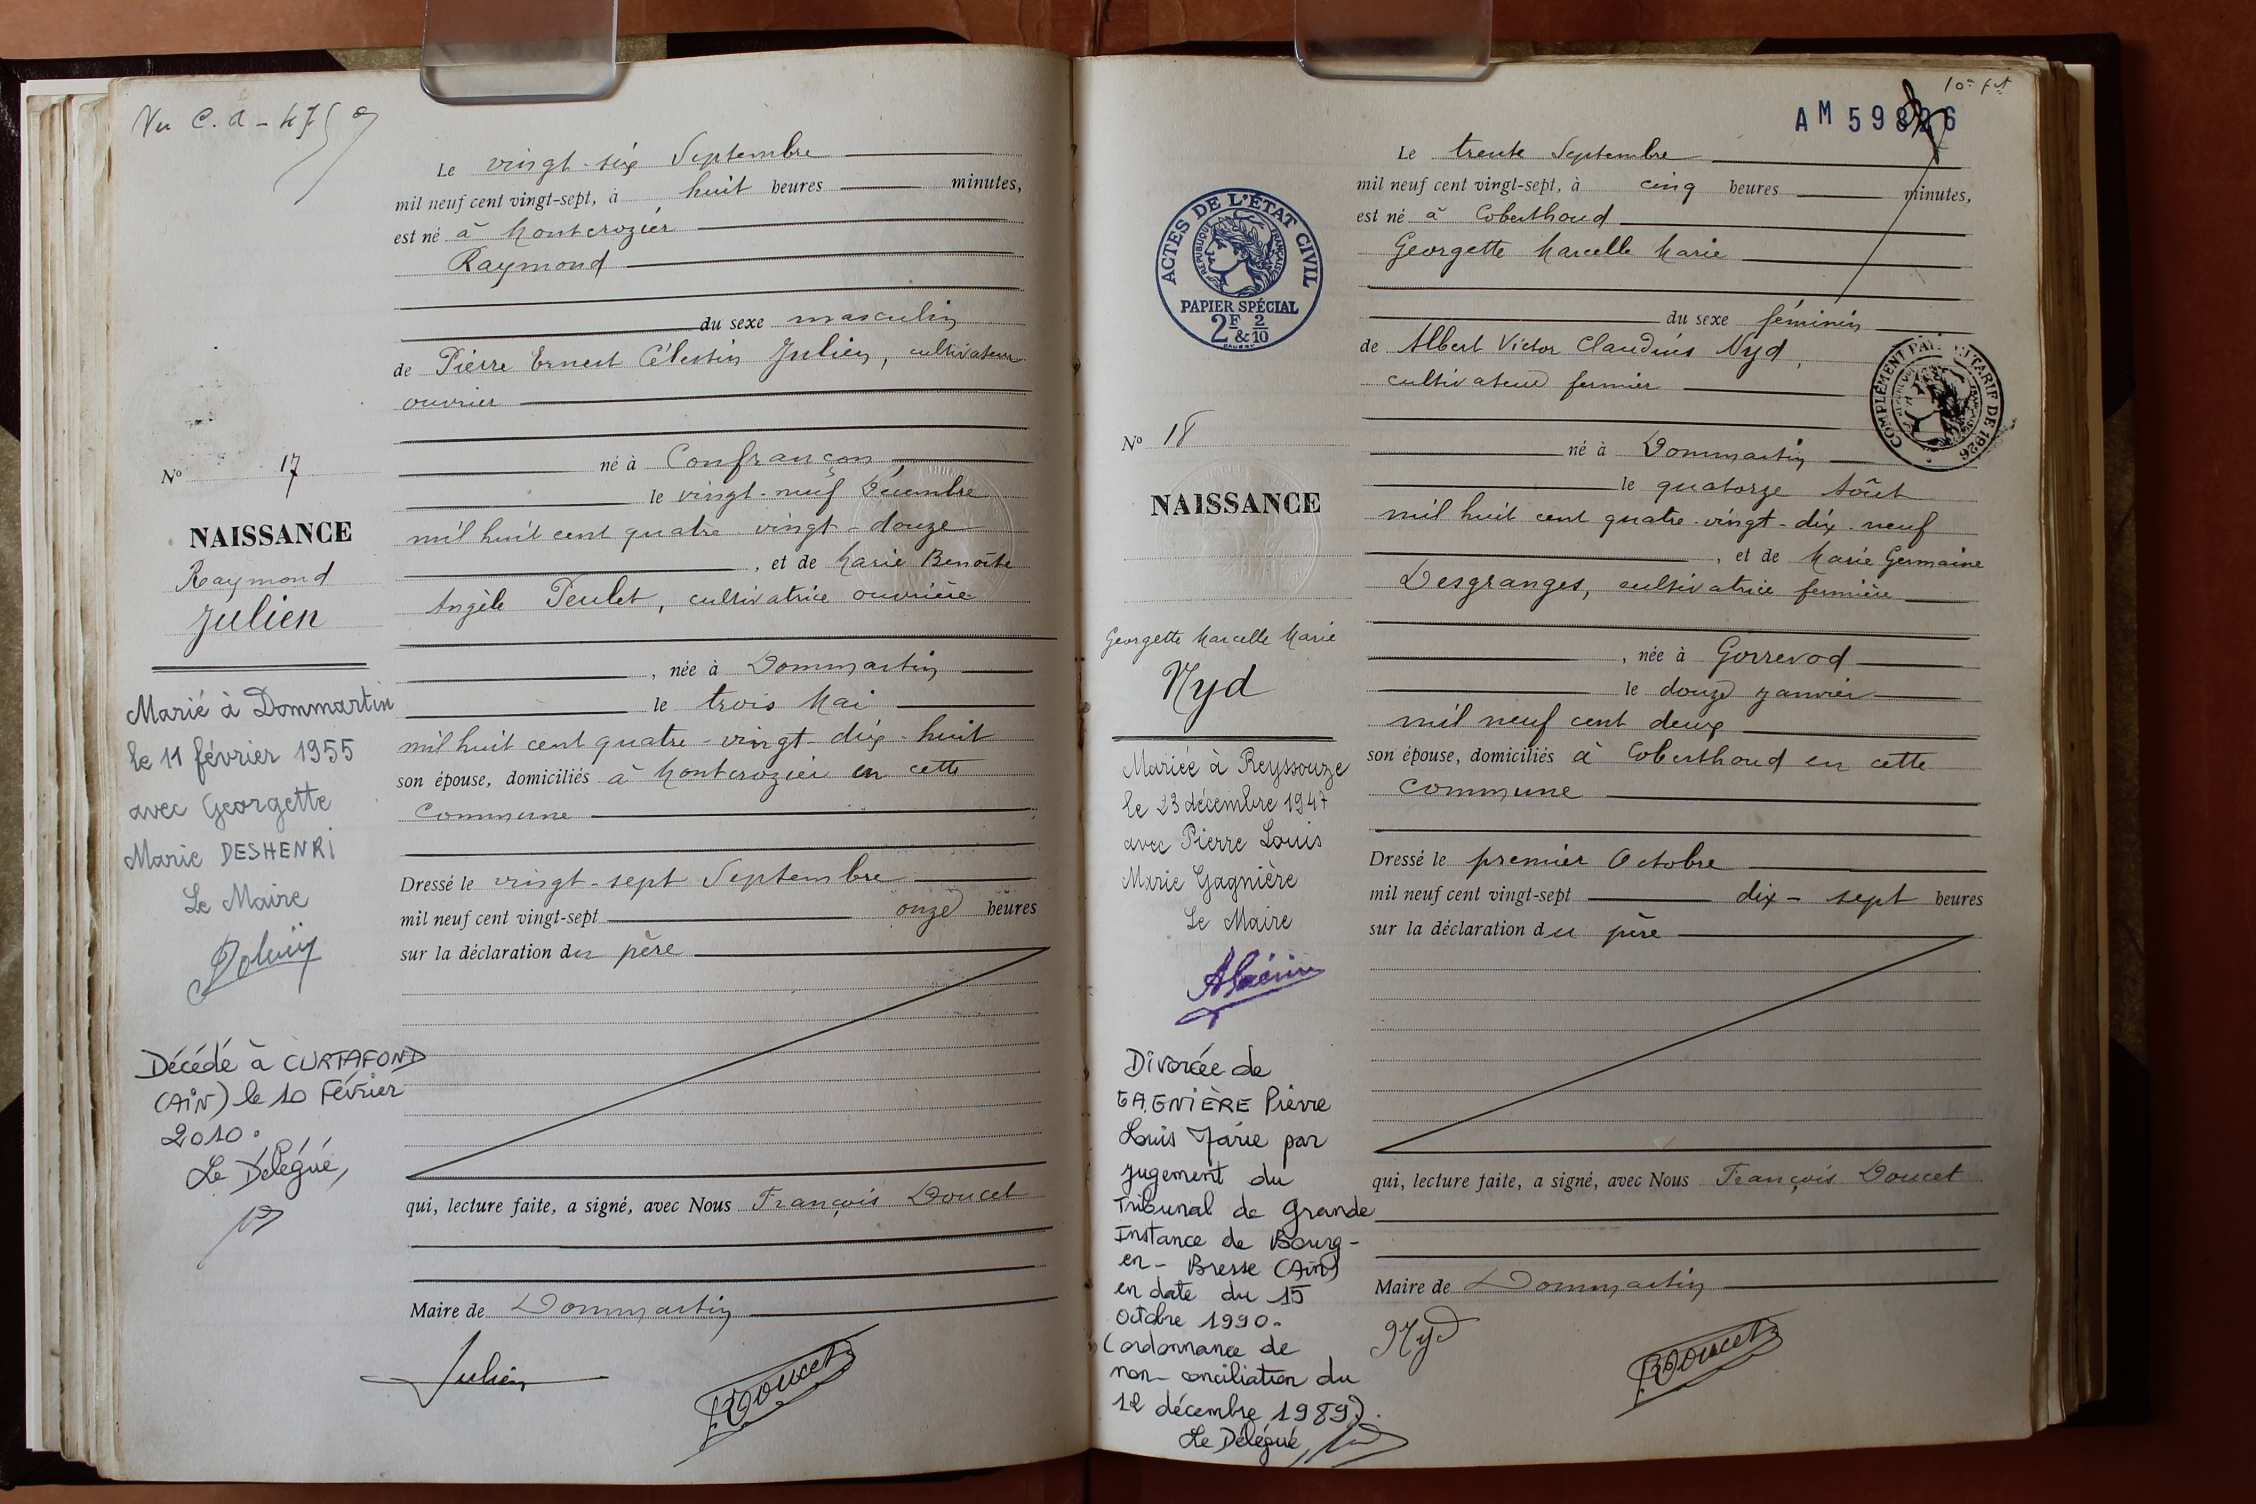 Vu C.A - 47
Le vingt-six Septembre
mil neuf cent vingt-sept, à huit heures minutes,
est né à Montcrozier
Raymond
du sexe masculin
de Pierre Ernest Célestin Julien, cultivateur
ouvrier
né à Confrançon
le vingt-neuf Décembre
mil huit cent quatre-vingt-douze
, et de Marie Benoîte
Angèle Peulet, cultivatrice ouvrière
, née à Dommartin
le trois Mai
mil huit cent quatre-vingt-dix-huit
son épouse, domiciliés à Montcrozier en cette
Commune
Dressé le vingt-sept Septembre
mil neuf cent vingt-sept onze heures
sur la déclaration du père
qui, lecture faite, a signé, avec Nous François Doucet
Maire de Dommartin
Julien
Doucet
No 17
NAISSANCE
Raymond
Julien
Marié à Dommartin
le 11 février 1955
avec Georgette
Marie DESHENRI
Le Maire
Décédé à CURTAFOND
(AiN) le 10 Février
2010.
Le Délégué,
10e ft
AM 59826
Le trente Septembre
mil neuf cent vingt-sept, à cinq heures minutes,
est né à Coberthoud
Georgette Marcelle Marie
du sexe féminin
de Albert Victor Claudius Nyd,
cultivateur fermier
né à Dommartin
le quatorze Août
mil huit cent quatre-vingt-dix-neuf
, et de Marie Germaine
Desgranges, cultivatrice fermière
, née à Gorrevod
le douze janvier
mil neuf cent deux
son épouse, domiciliés à Coberthoud en cette
Commune
Dressé le premier Octobre
mil neuf cent vingt-sept dix-sept heures
sur la déclaration du père
qui, lecture faite, a signé, avec Nous François Doucet
Maire de Dommartin
Nyd
Doucet
ACTES DE L'ÉTAT CIVIL
RÉPUBLIQUE FRANÇAISE
PAPIER SPÉCIAL
2F & 2/10
COMPLÉMENT TARIF DE 1926
No 18
NAISSANCE
Georgette Marcelle Marie
Nyd
Mariée à Reyssouze
le 23 décembre 1947
avec Pierre Louis
Marie Gagnière
Le Maire
Divorcée de
GAGNIÈRE Pierre
Louis Marie par
jugement du
Tribunal de Grande
Instance de Bourg-
en-Bresse (Ain)
en date du 15
Octobre 1990.
(ordonnance de
non-conciliation du
12 décembre 1989).
Le Délégué,